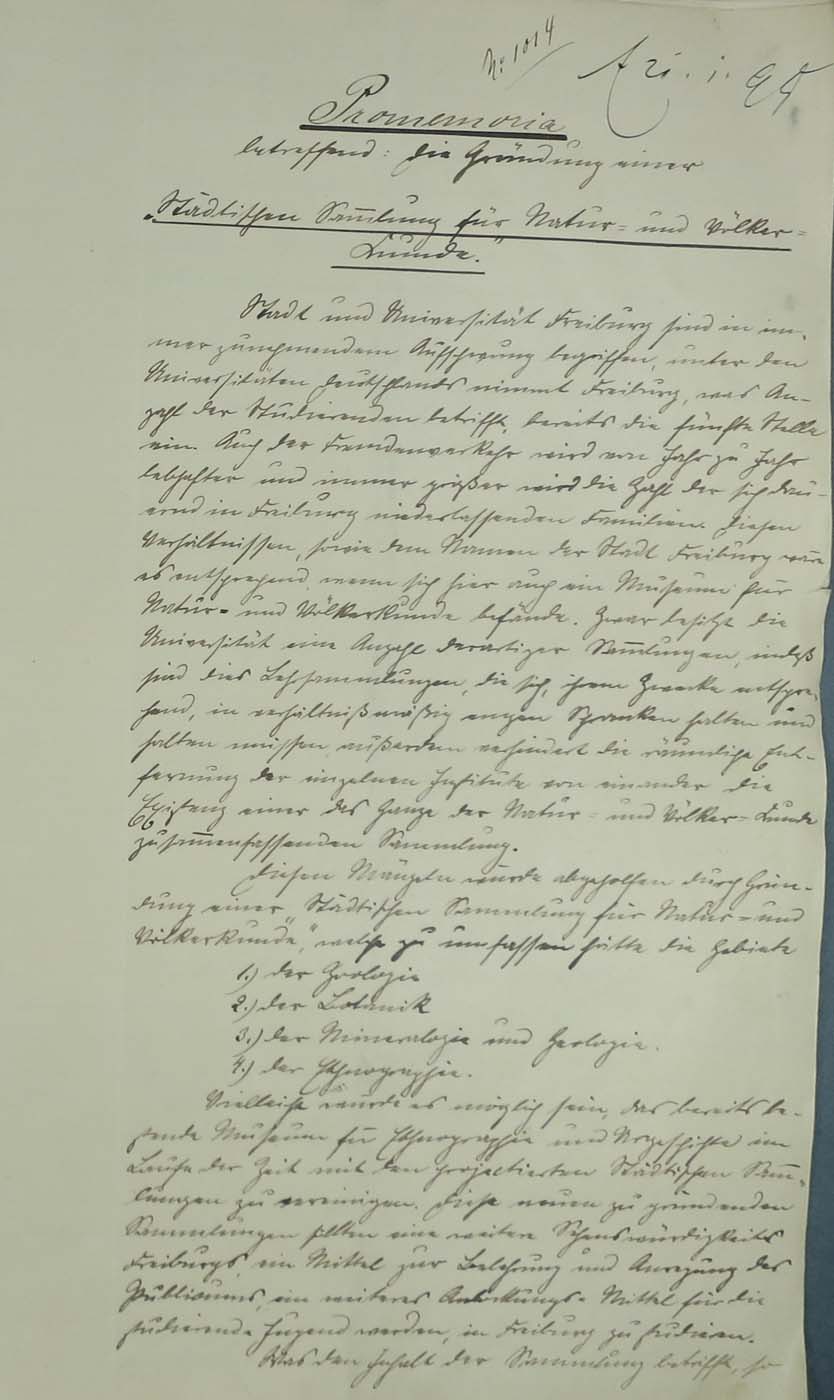 No 1014
Promemoria
betreffend: die Gründung einer
„Städtischen Sam̅lung für Natur= und Völker=
kunde.“
Stadt und Universität Freiburg sind in im-
mer zunehmendem Aufschwung begriffen, unter den
Universitäten Deutschlands nimmt Freiburg, was An-
zahl der Studierenden betrifft, bereits die fünfte Stelle
ein. Auch der Fremdenverkehr wird von Jahr zu Jahr
lebhafter und immer größer wird die Zahl der sich dau-
ernd in Freiburg niederlassenden Familien. Diesen
Verhältnissen, sowie dem Namen der Stadt Freiburg wäre
es entsprechend, wenn sich hier auch ein Museum für
Natur= und Völkerkunde befände. Zwar besitzt die
Universität eine Anzahl derartiger Sam̅lungen, indeß
sind dies Lehrsammlungen, die sich, ihrem Zwecke entspre-
chend, in verhältnißmäßig engen Schranken halten und
halten müssen, außerdem verhindert die räumliche Ent-
fernung der einzelnen Institute von einander die
Existenz einer das Ganze der Natur= und Völker=Kunde
zusam̅enfassenden Sammlung.
Diesen Mängeln würde abgeholfen durch Grün-
dung einer „Städtischen Sammlung für Natur= und
Völkerkunde“, welche zu umfassen hätte die Gebiete
1.) der Zoologie
2.) der Botanik
3.) der Mineralogie und Geologie.
4.) der Ethnographie.
Vielleicht würde es möglich sein, das bereits be-
stende Museum für Ethnographie und Urgeschichte im
Laufe der Zeit mit den projectierten Städtischen Sam̅-
lungen zu vereinigen. Diese neuen zu gründenden
Sammlungen sollten eine weitere Sehenswürdigkeit
Freiburgs, ein Mittel zur Belehrung und Anregung des
Publicums, ein weiteres Anlockungs-Mittel für die
studierende Jugend werden, in Freiburg zu studieren.
Was den Inhalt der Sammlung betrifft, so